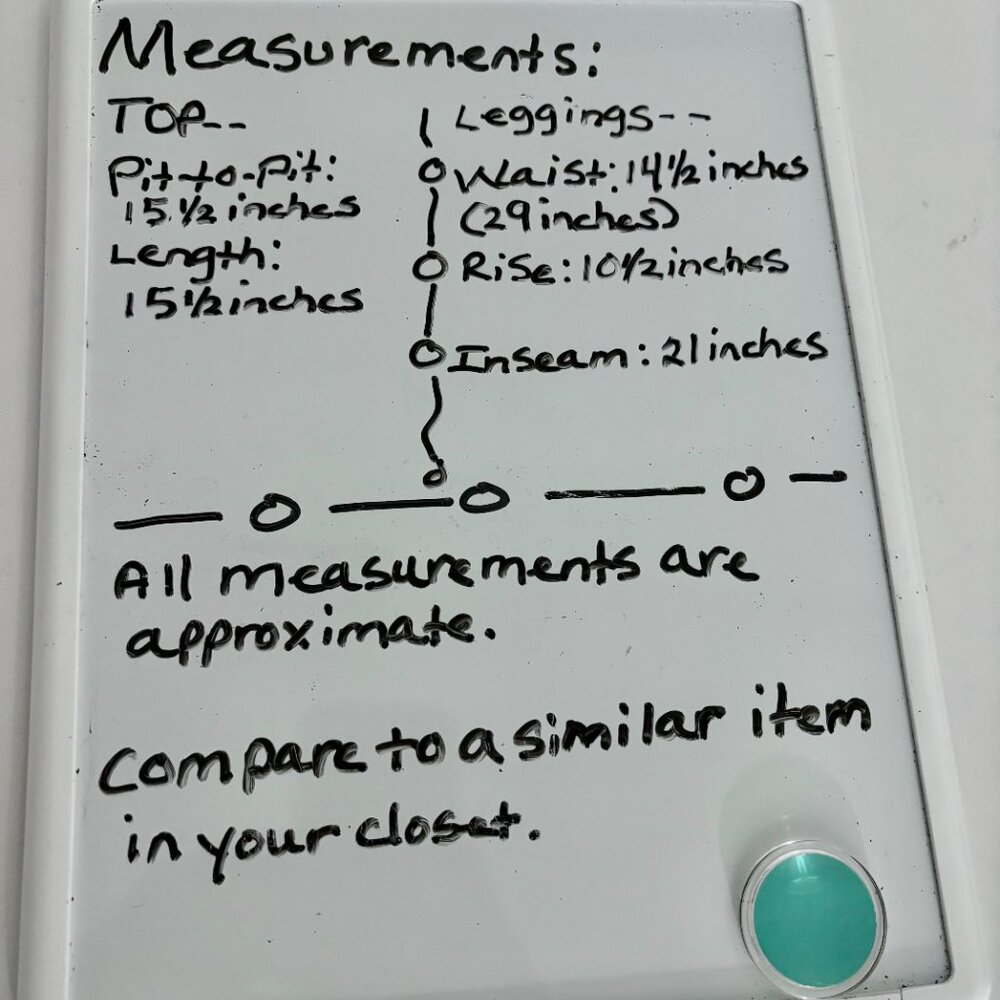 Measurements:
TOP--
Pit-to-Pit:
15 1/2 inches
Length:
15 1/2 inches
Leggings--
Waist: 14 1/2 inches
(29 inches)
Rise: 10 1/2 inches
Inseam: 21 inches
All measurements are
approximate.
Compare to a similar item
in your closet.